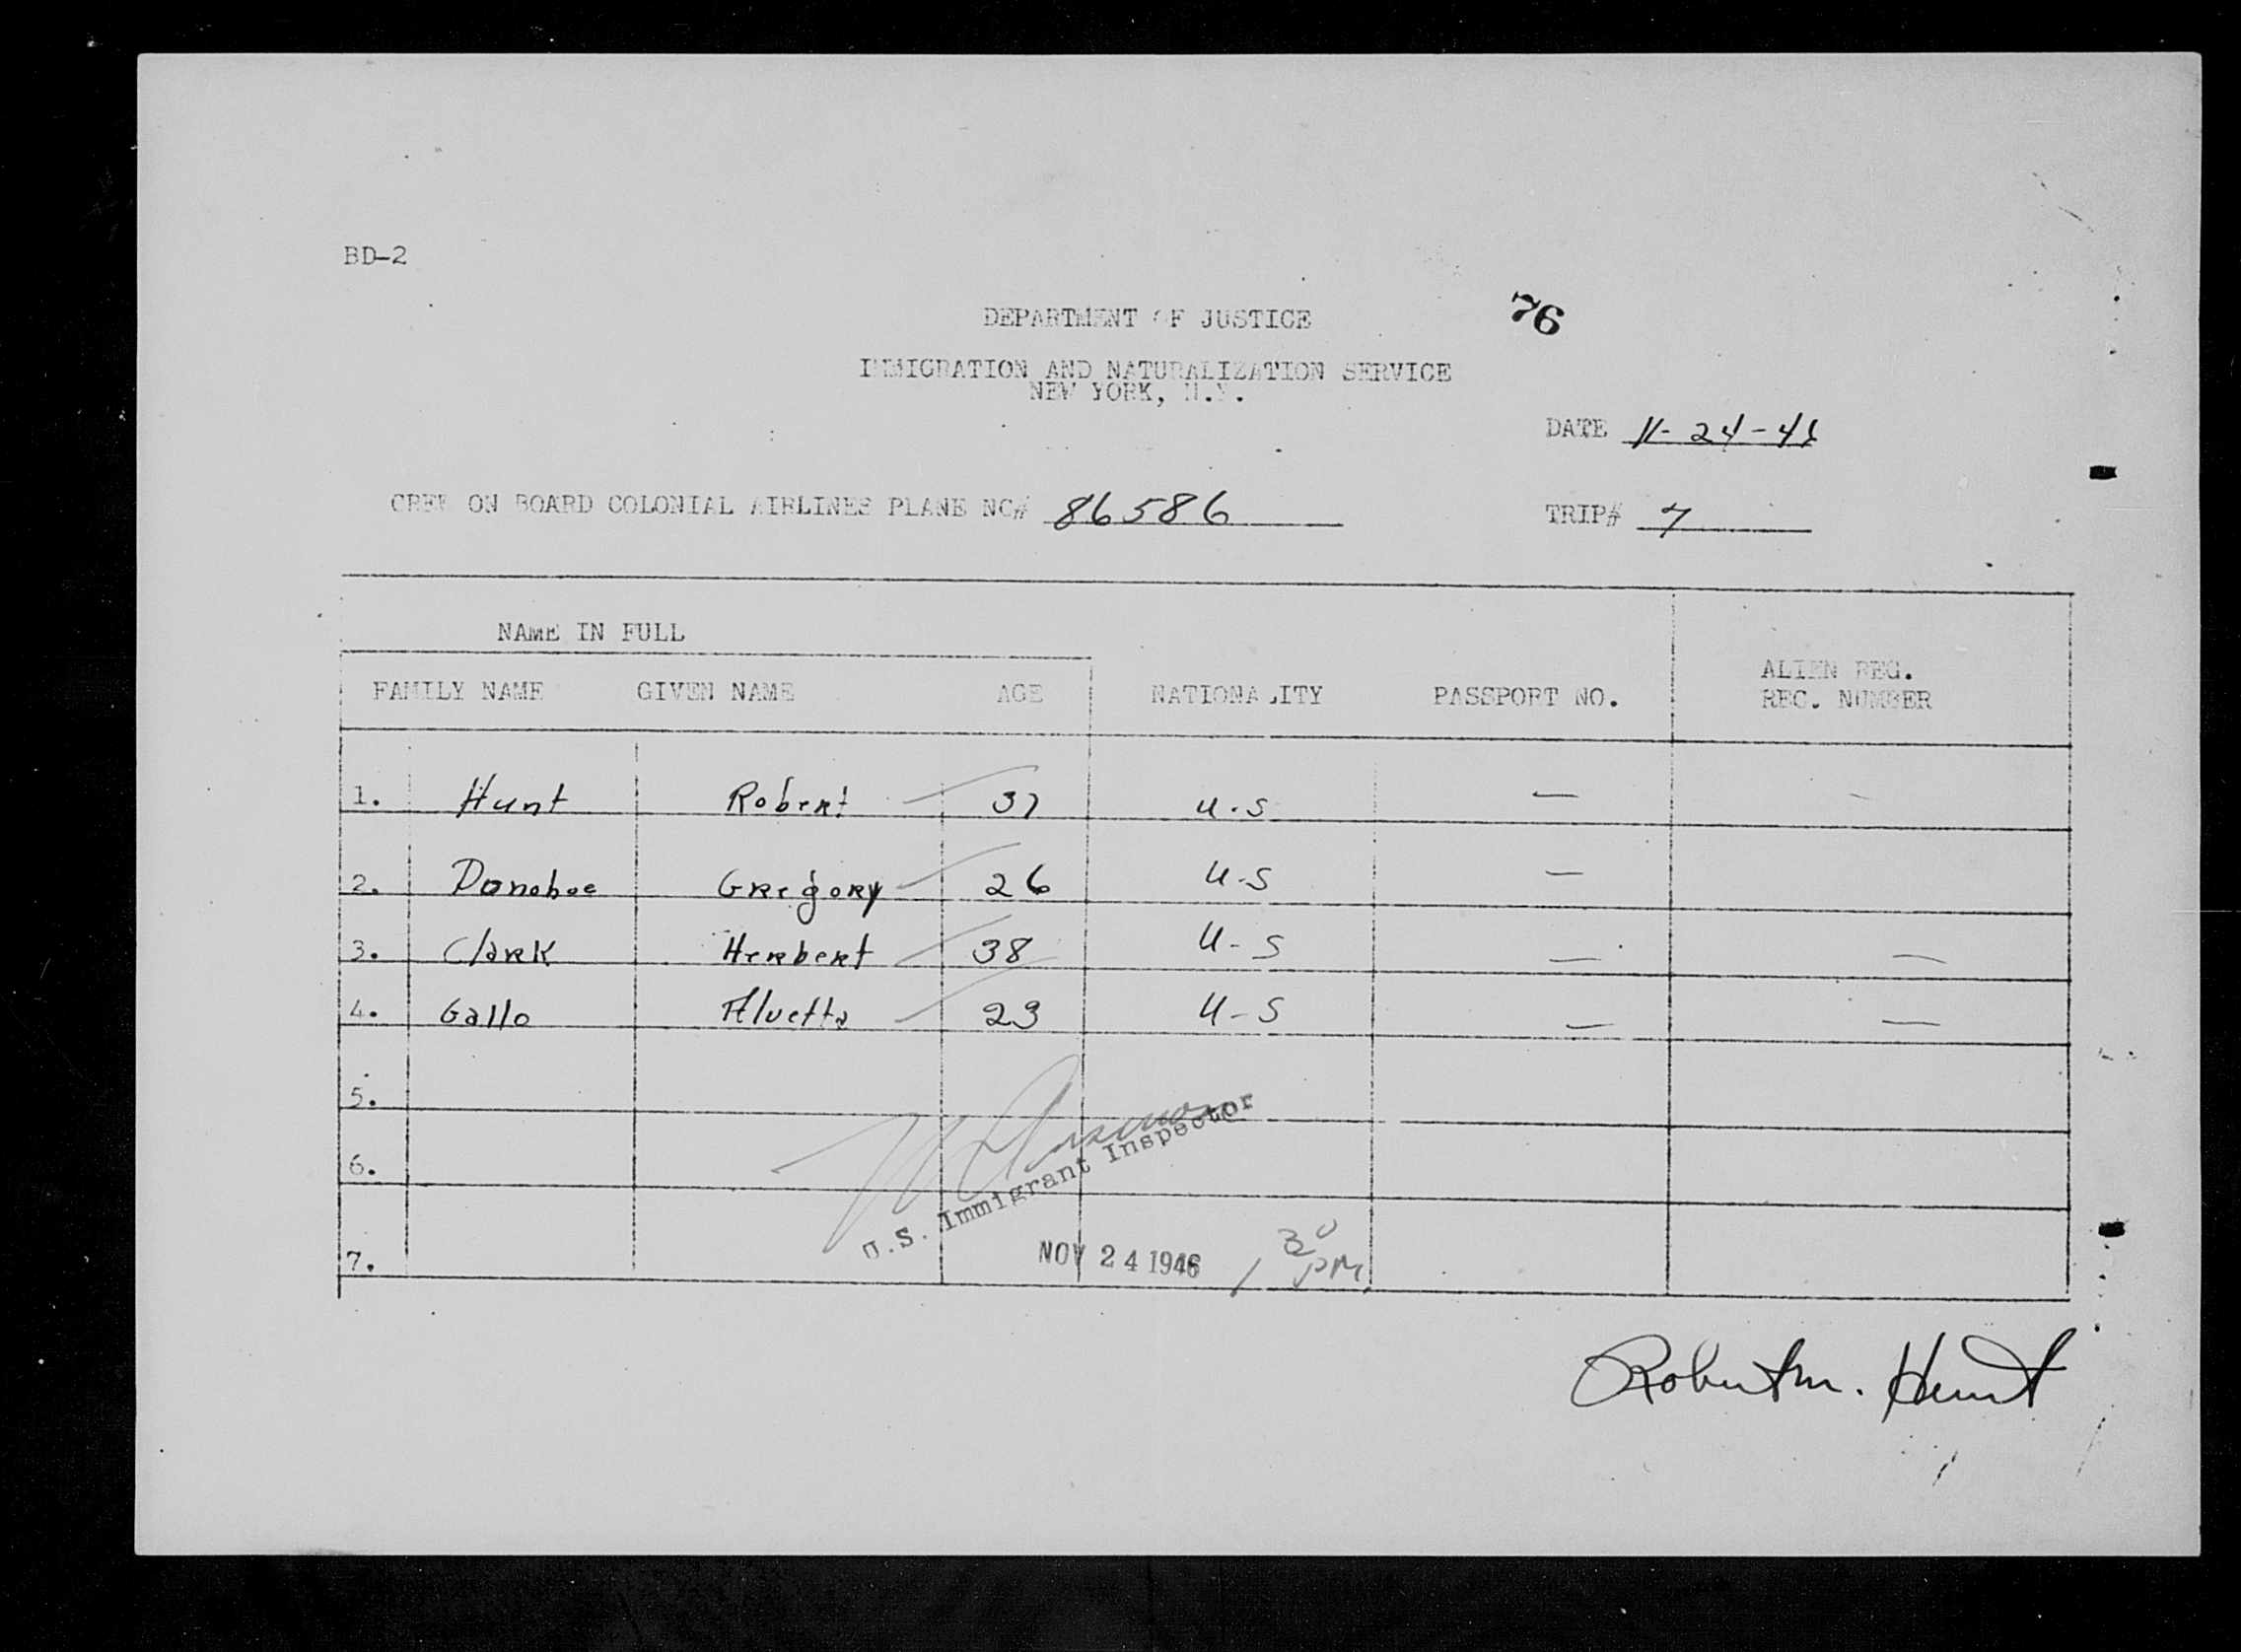 BD-2
76
DEPARTMENT OF JUSTICE
IMMIGRATION AND NATURALIZATION SERVICE
NEW YORK, N.Y.
DATE 11-24-46
CREW ON BOARD COLONIAL AIRLINES PLANE NC# 86586 TRIP# 7
NAME IN FULL
FAMILY NAME GIVEN NAME AGE NATIONALITY PASSPORT NO. ALIEN REG.
REC. NUMBER
1. Hunt Robert 37 U.S — –
2. Donohoe Gregory 26 U-S —
3. Clark Herbert 38 U-S — —
4. Gallo Alvetta 23 U-S — —
5.
6.
U.S. Immigrant Inspector
7. NOV 24 1946 1 30 PM
Robert M. Hunt